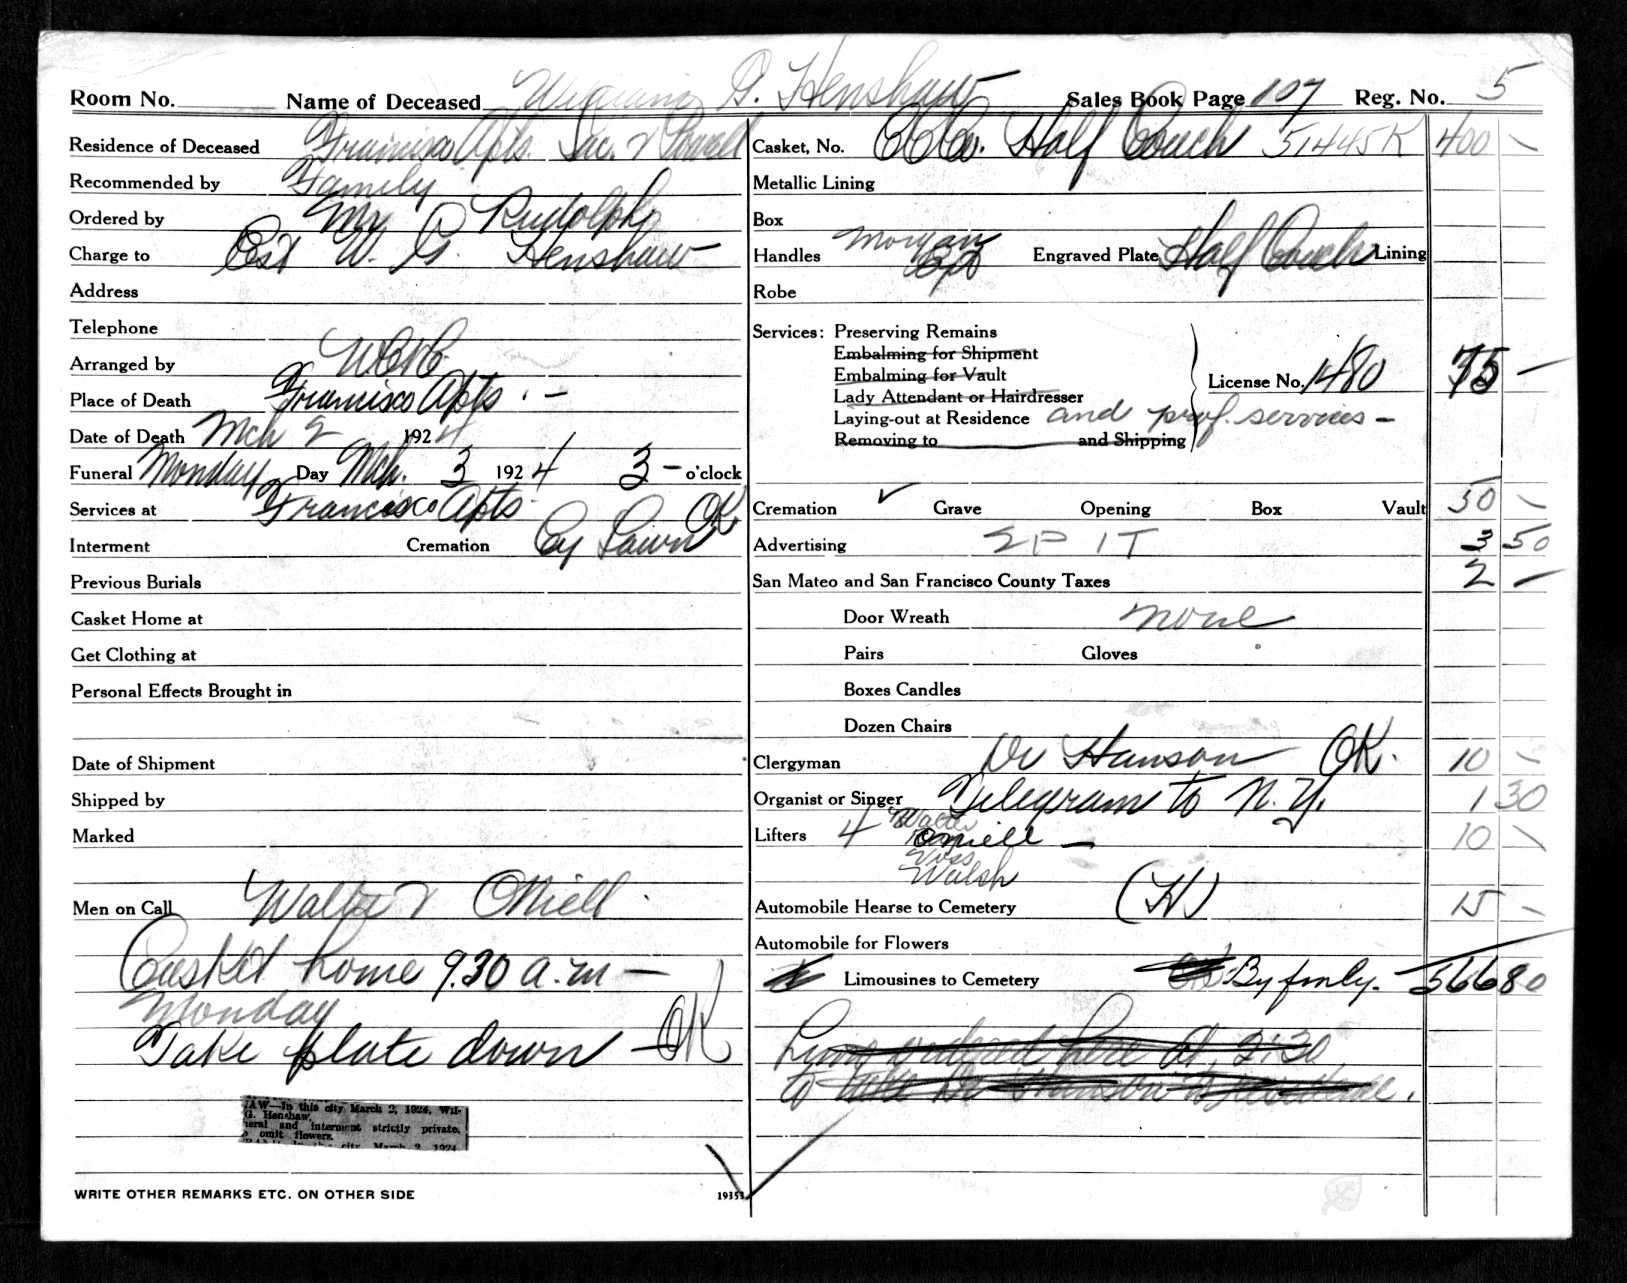 Room No. Name of Deceased William G. Henshaw Sales Book Page 107 Reg. No. 5
Residence of Deceased Francisco Apts. Sac. & Powell
Recommended by Family
Ordered by Mr Rudolph
Charge to Est W. G. Henshaw
Address
Telephone
Arranged by
Place of Death Francisco Apts. -
Date of Death Mch 2 1924
Funeral Monday Day Mch. 3 1924 3 - o'clock
Services at Francisco Apts.
Interment Cremation Cy Lawn OK
Previous Burials
Casket Home at
Get Clothing at
Personal Effects Brought in
Date of Shipment
Shipped by
Marked
Men on Call Walter & ONiell
Casket home 9.30 a.m -
Monday
Take plate down - OK
AW—In this city March 2, 1924, Wil-
G. Henshaw.
eral and interment strictly private.
omit flowers.
city March 2, 1924
WRITE OTHER REMARKS ETC. ON OTHER SIDE
19353
Casket, No. CCCo. Half Couch 51445K 400 -
Metallic Lining
Box
Handles Morgan Engraved Plate Half Couch Lining
Robe
Services: Preserving Remains
Embalming for Shipment
Embalming for Vault
License No. 1480 75 -
Lady Attendant or Hairdresser
Laying-out at Residence and prof. services -
Removing to and Shipping
Cremation ✓ Grave Opening Box Vault 50 -
Advertising 2P 1T 3 50
San Mateo and San Francisco County Taxes 2 -
Door Wreath none
Pairs Gloves
Boxes Candles
Dozen Chairs
Clergyman Dr Hanson OK. 10 -
Organist or Singer Telegram to N.Y. 1 30
Lifters 4 Walter 10 -
Oniell -
Voss
Walsh
Automobile Hearse to Cemetery (H) 15 -
Automobile for Flowers
Limousines to Cemetery By fmly. 566 80
Limo ordered here at 2:30
to take Dr Hanson to residence.